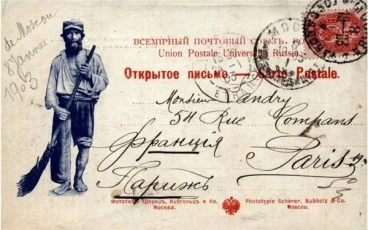 de Moscou
9 Janvier
1903
ВСЕМІРНЫЙ ПОЧТОВЫЙ СОЮЗЪ.
Union Postale Universelle Russie.
Открытое письмо. — Carte Postale.
Monsieur Vandry
54 Rue Compans
Франція Paris 19
Парижъ
Фототипія Шереръ, Набгольцъ и Ко. Москва.
Phototypie Scherer, Nabholz & Co. Moscou.